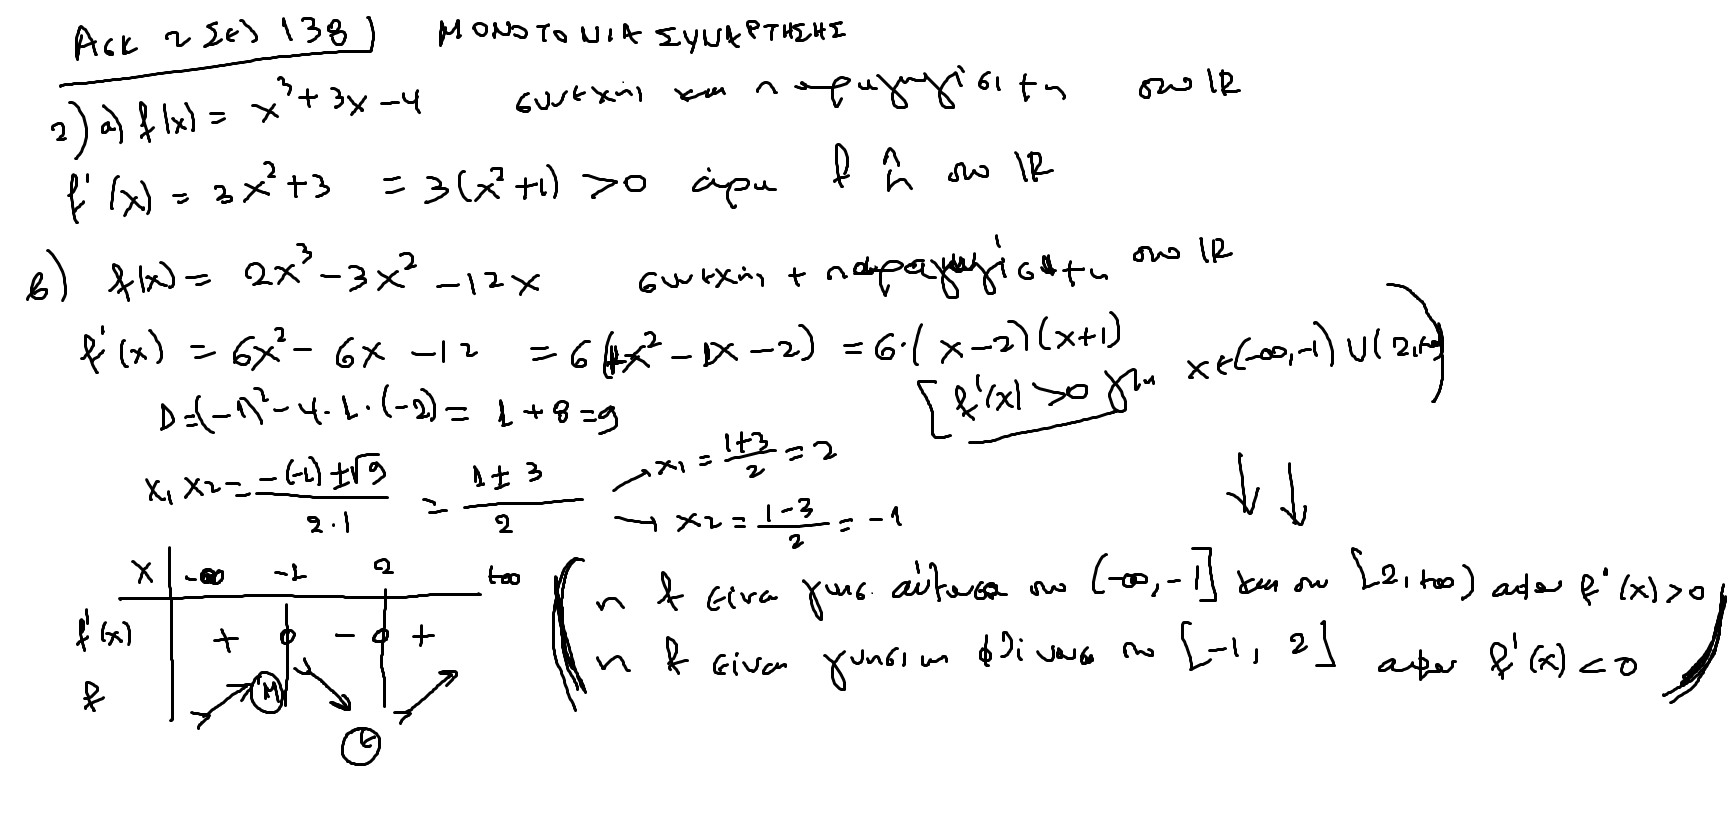 Ασκ 2 Σελ 138) ΜΟΝΟΤΟΝΙΑ ΣΥΝΑΡΤΗΣΗΣ
2) α) f(x) = x³+3x-4 συνεχής και παραγωγίσιμη στο ℝ
f'(x) = 3x²+3 = 3(x²+1) >0 άρα f ↑ στο ℝ
β) f(x) = 2x³-3x²-12x συνεχής + παραγωγίσιμη στο ℝ
f'(x) = 6x²-6x-12 = 6(1x²-1x-2) = 6·(x-2)(x+1)
[f'(x) >0 για x∈(-∞,-1)∪(2,+∞)
D=(-1)²-4·1·(-2)= 1+8=9
x₁ x₂ = -(-1)±√9 / 2·1 = 1±3 / 2
→ x₁ = 1+3 / 2 = 2
→ x₂ = 1-3 / 2 = -1
↓↓
x -∞ -1 2 +∞
f'(x) + 0 - 0 +
f ↗ M ↘ ε ↗
η f είναι γνησ. αύξουσα στο (-∞,-1] και στο [2,+∞) αφού f'(x)>0
η f είναι γνησίως φθίνουσα στο [-1, 2] αφού f'(x)<0